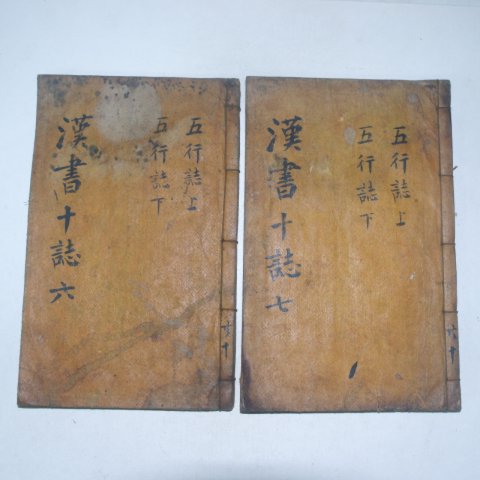 五行誌上
五行誌下
漢書十誌六
五行誌上
五行誌下
漢書十誌七